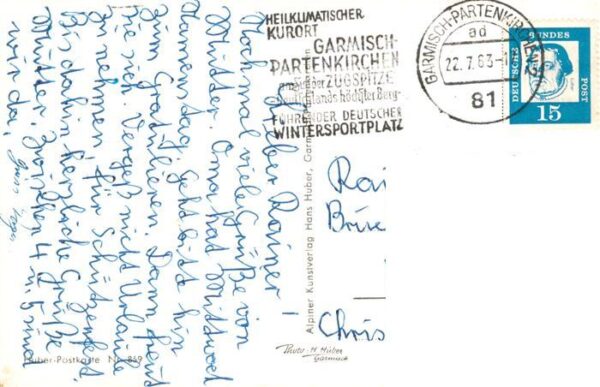 HEILKLIMATISCHER
KURORT
GARMISCH-
PARTENKIRCHEN
ZUGSPITZE
höchster Berg
FÜHRENDER DEUTSCHER
WINTERSPORTPLATZ
GARMISCH-PARTENKIRCHEN 2
ad
22.7.63
81
DEUTSCHE BUNDESPOST
15
Lieber Rainer!
Noch mal viele Grüße von
Mutter. Oma hat Mittwoch
Namenstag, geht hin
zum Gratulieren. Dann freut
sie sich. Vergeß nicht Urlaub
zu nehmen für Schützenfest.
Bis dahin herzliche Grüße
Mutter, 4 u. 5 sind
wir da.
Alpiner Kunstverlag Hans Huber, Garmisch-Partenkirchen
Rai
Chris
Photo-H. Huber
Garmisch
Huber-Postkarte Nr. 859